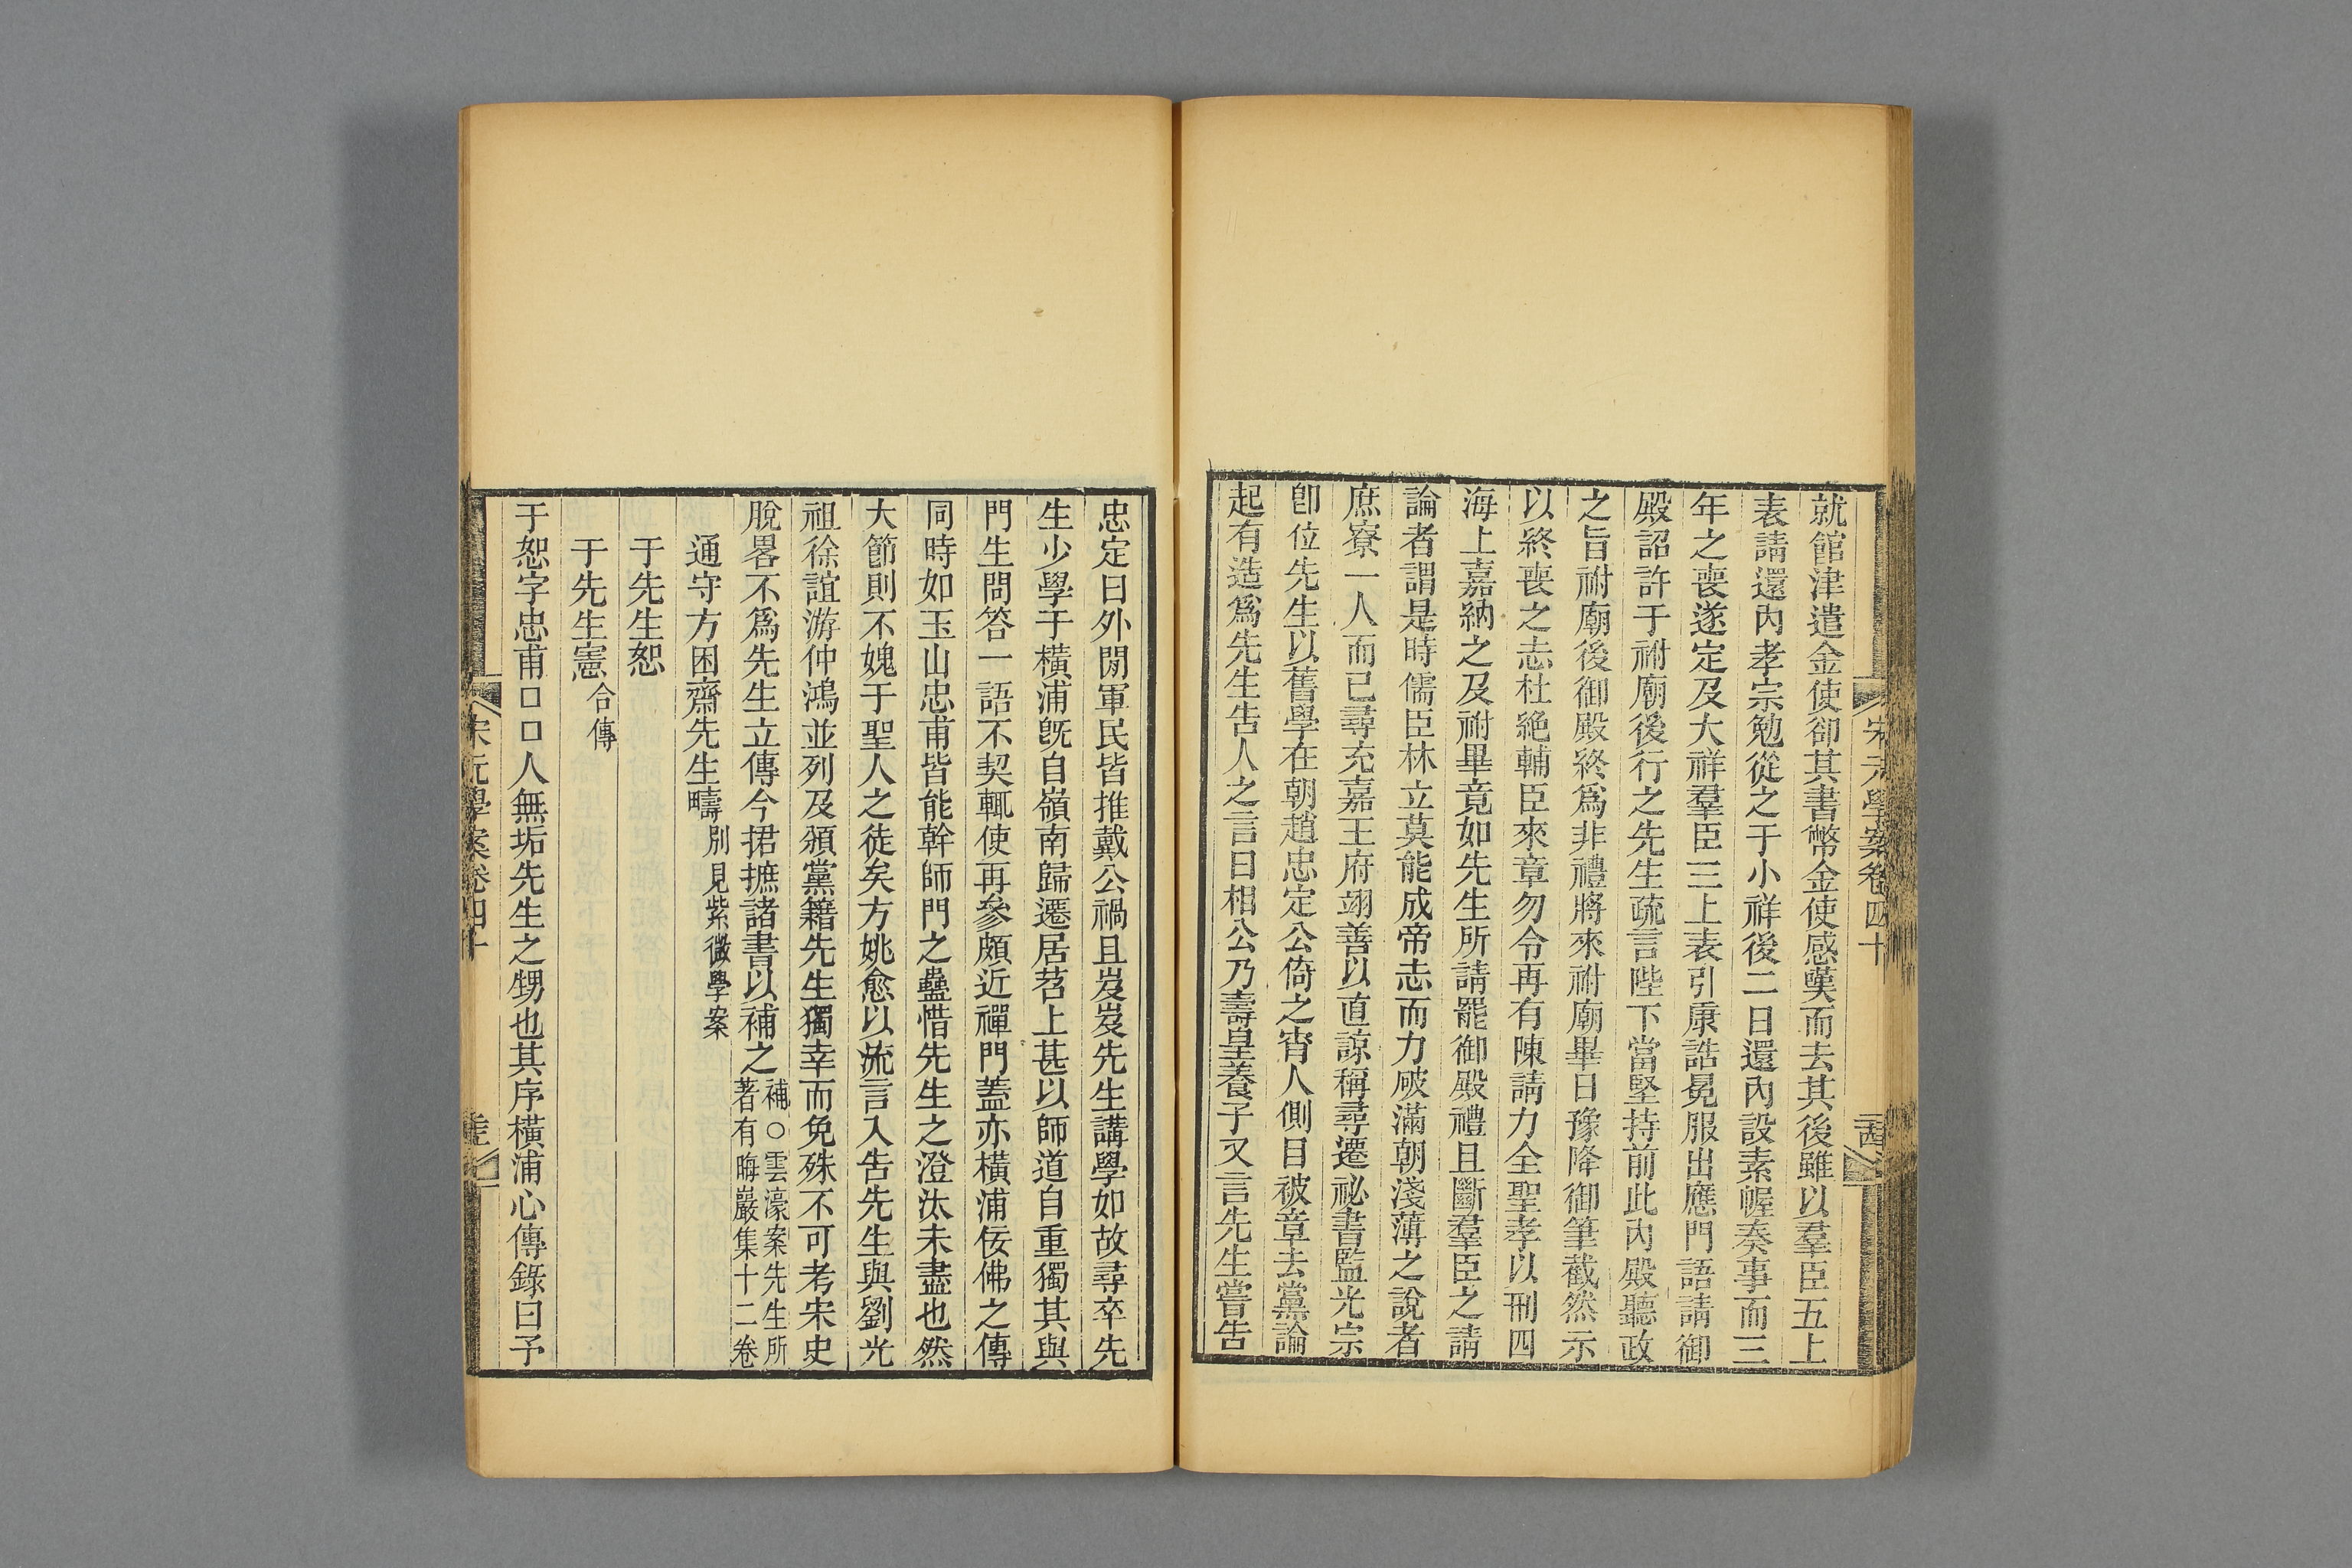 就館津遣金使卻其書幣金使感嘆而去其後雖以羣臣五上
表請還內孝宗勉從之于小祥後二日還內設素幄奏事而三
年之喪遂定及大祥羣臣三上表引康誥冕服出應門語請御
殿詔許于祔廟後行之先生疏言陛下當堅持前此內殿聽政
之旨祔廟後御殿終爲非禮將來祔廟畢日豫降御筆截然示
以終喪之志杜絶輔臣來章勿令再有陳請力全聖孝以刑四
海上嘉納之及祔畢竟如先生所請罷御殿禮且斷羣臣之請
論者謂是時儒臣林立莫能成帝志而力破滿朝淺薄之說者
庶寮一人而已尋充嘉王府翊善以直諒稱尋遷祕書監光宗
卽位先生以舊學在朝趙忠定公倚之宵人側目被章去黨論
起有造爲先生告人之言曰相公乃壽皇養子又言先生嘗告
宋元學案卷四十
忠定曰外閒軍民皆推戴公禍且岌岌先生講學如故尋卒先
生少學于橫浦旣自嶺南歸遷居苕上甚以師道自重獨其與
門生問答一語不契輒使再參頗近禪門蓋亦橫浦佞佛之傳
同時如玉山忠甫皆能幹師門之蠱惜先生之澄汰未盡也然
大節則不媿于聖人之徒矣方姚愈以流言入告先生與劉光
祖徐誼游仲鴻並列及頒黨籍先生獨幸而免殊不可考宋史
脫畧不爲先生立傳今捃摭諸書以補之補○雲濠案先生所
著有晦巖集十二卷
通守方困齋先生疇別見紫微學案
于先生恕
于先生憲合傳
于恕字忠甫□□人無垢先生之甥也其序橫浦心傳錄曰予
宋元學案卷四十